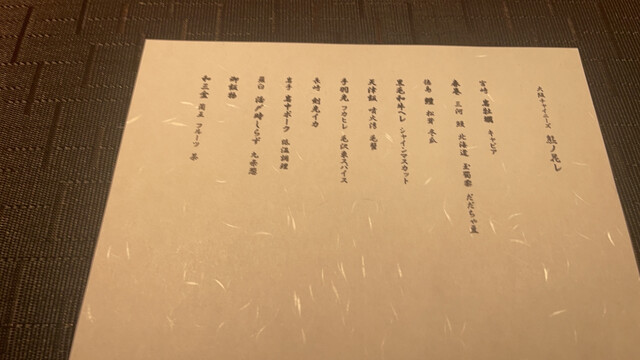 大阪チャイニーズ
宮崎 岩牡蠣 キャビア
春巻 三河 鰻 北海道 玉蜀黍 だだちゃ豆
鱧 松茸 冬瓜
黒毛和牛ヒレ シャインマスカット
天津飯 噴火湾 毛蟹
手羽先 フカヒレ 毛沢東スパイス
長崎 剣先イカ
岩手 岩中ポーク 低温調理
しらす 九条葱
御飯物
和三盆 フルーツ 茶